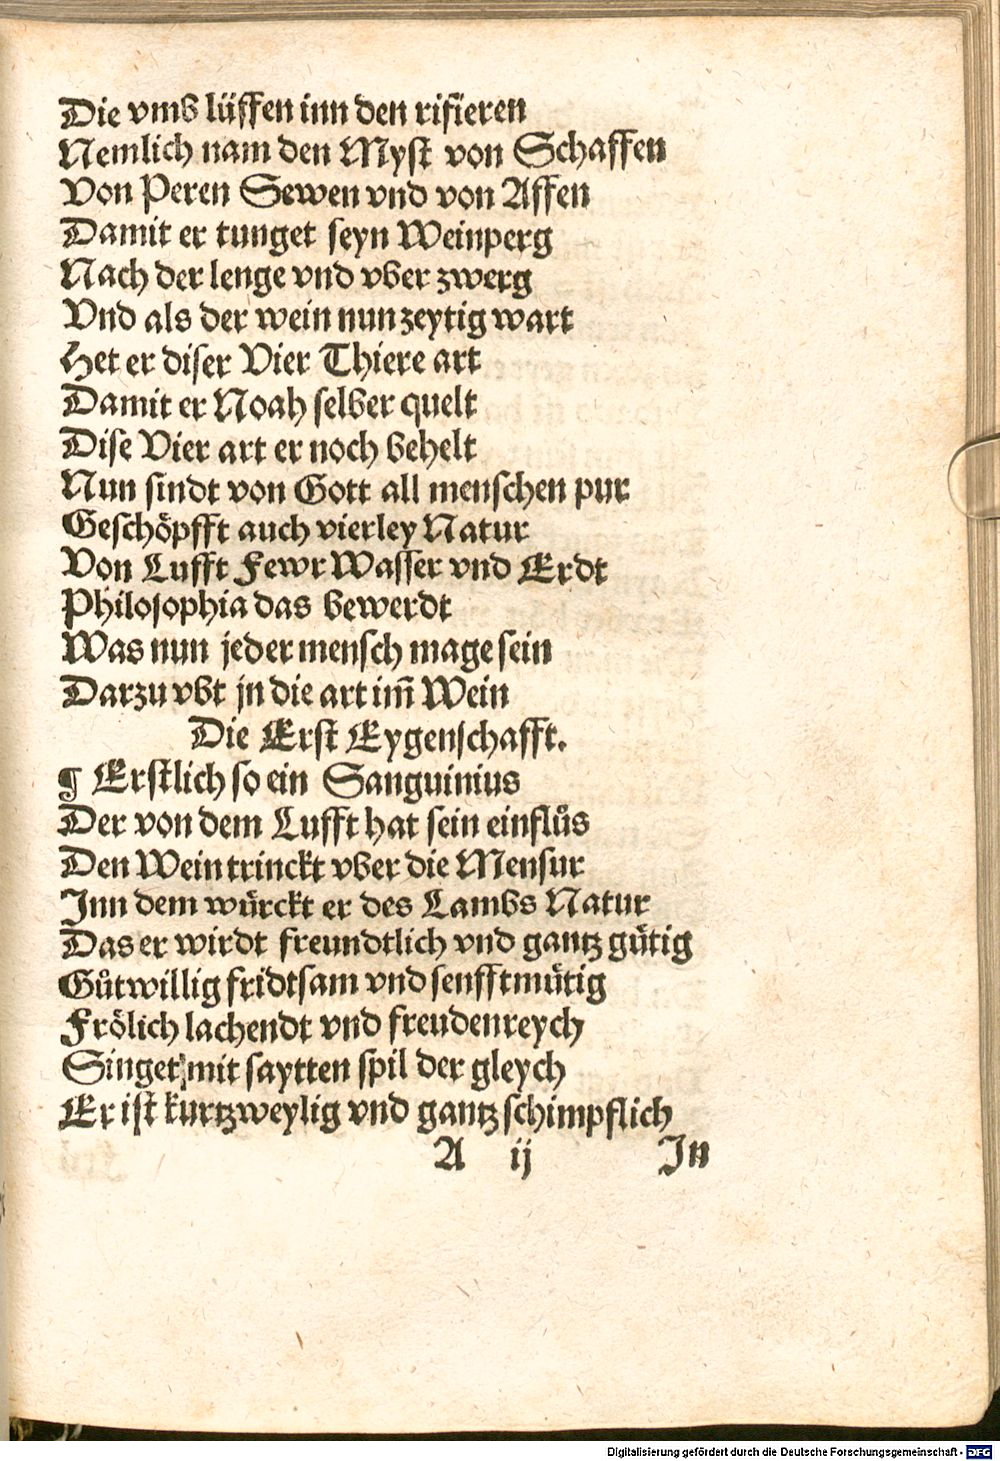 Die vmb lüffen inn den rifieren
Nemlich nam den Myſt von Schaffen
Von Peren Sewen vnd von Affen
Damit er tunget ſeyn Weinperg
Nach der lenge vnd vber zwerg
Vnd als der wein nun zeytig wart
Het er diſer Vier Thiere art
Damit er Noah ſelber quelt
Diſe Vier art er noch behelt
Nun ſindt von Gott all menſchen pur
Geſchöpfft auch vierley Natur
Von Lufft Fewr Waſſer vnd Erdt
Philoſophia das bewerdt
Was nun jeder menſch mage ſein
Darzu vbt jn die art im̃ Wein
Die Erſt Eygenſchafft.
¶ Erſtlich ſo ein Sanguinius
Der von dem Lufft hat ſein einflůs
Den Wein trinckt vber die Menſur
Inn dem würckt er des Lambs Natur
Das er wirdt freundtlich vnd gantz gütig
Gůtwillig fridtſam vnd ſenfftmütig
Frölich lachendt vnd freudenreych
Singet mit ſaytten ſpil der gleych
Er iſt kurtzweylig vnd gantz ſchimpflich
A ij In
Digitalisierung gefördert durch die Deutsche Forschungsgemeinschaft - DFG